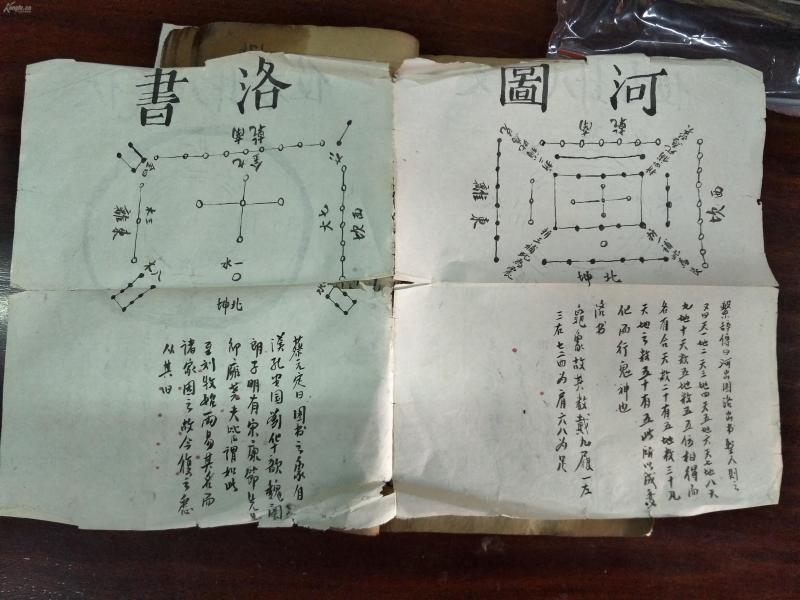 河圖
乾南
西坎
離東
北坤
繫辭傳曰河出圖洛出書聖人則之
又曰天一地二天三地四天五地六天七地八天
九地十天数五地数五五位相得而
各有合天数二十有五地数三十凡
天地之数五十有五此所以成变
化而行鬼神也
洛书
龜象故其数戴九履一左
三右七二四为肩六八为足
洛書
乾南
金九
西坎
火七
離東
木三
水一
北坤
蔡元定曰图书之象自
漢孔安国劉
朗子明有宋康節先生
邵雍堯夫此謂如此
至刘牧始两易其名而
諸家因之故今復之悉
从其旧